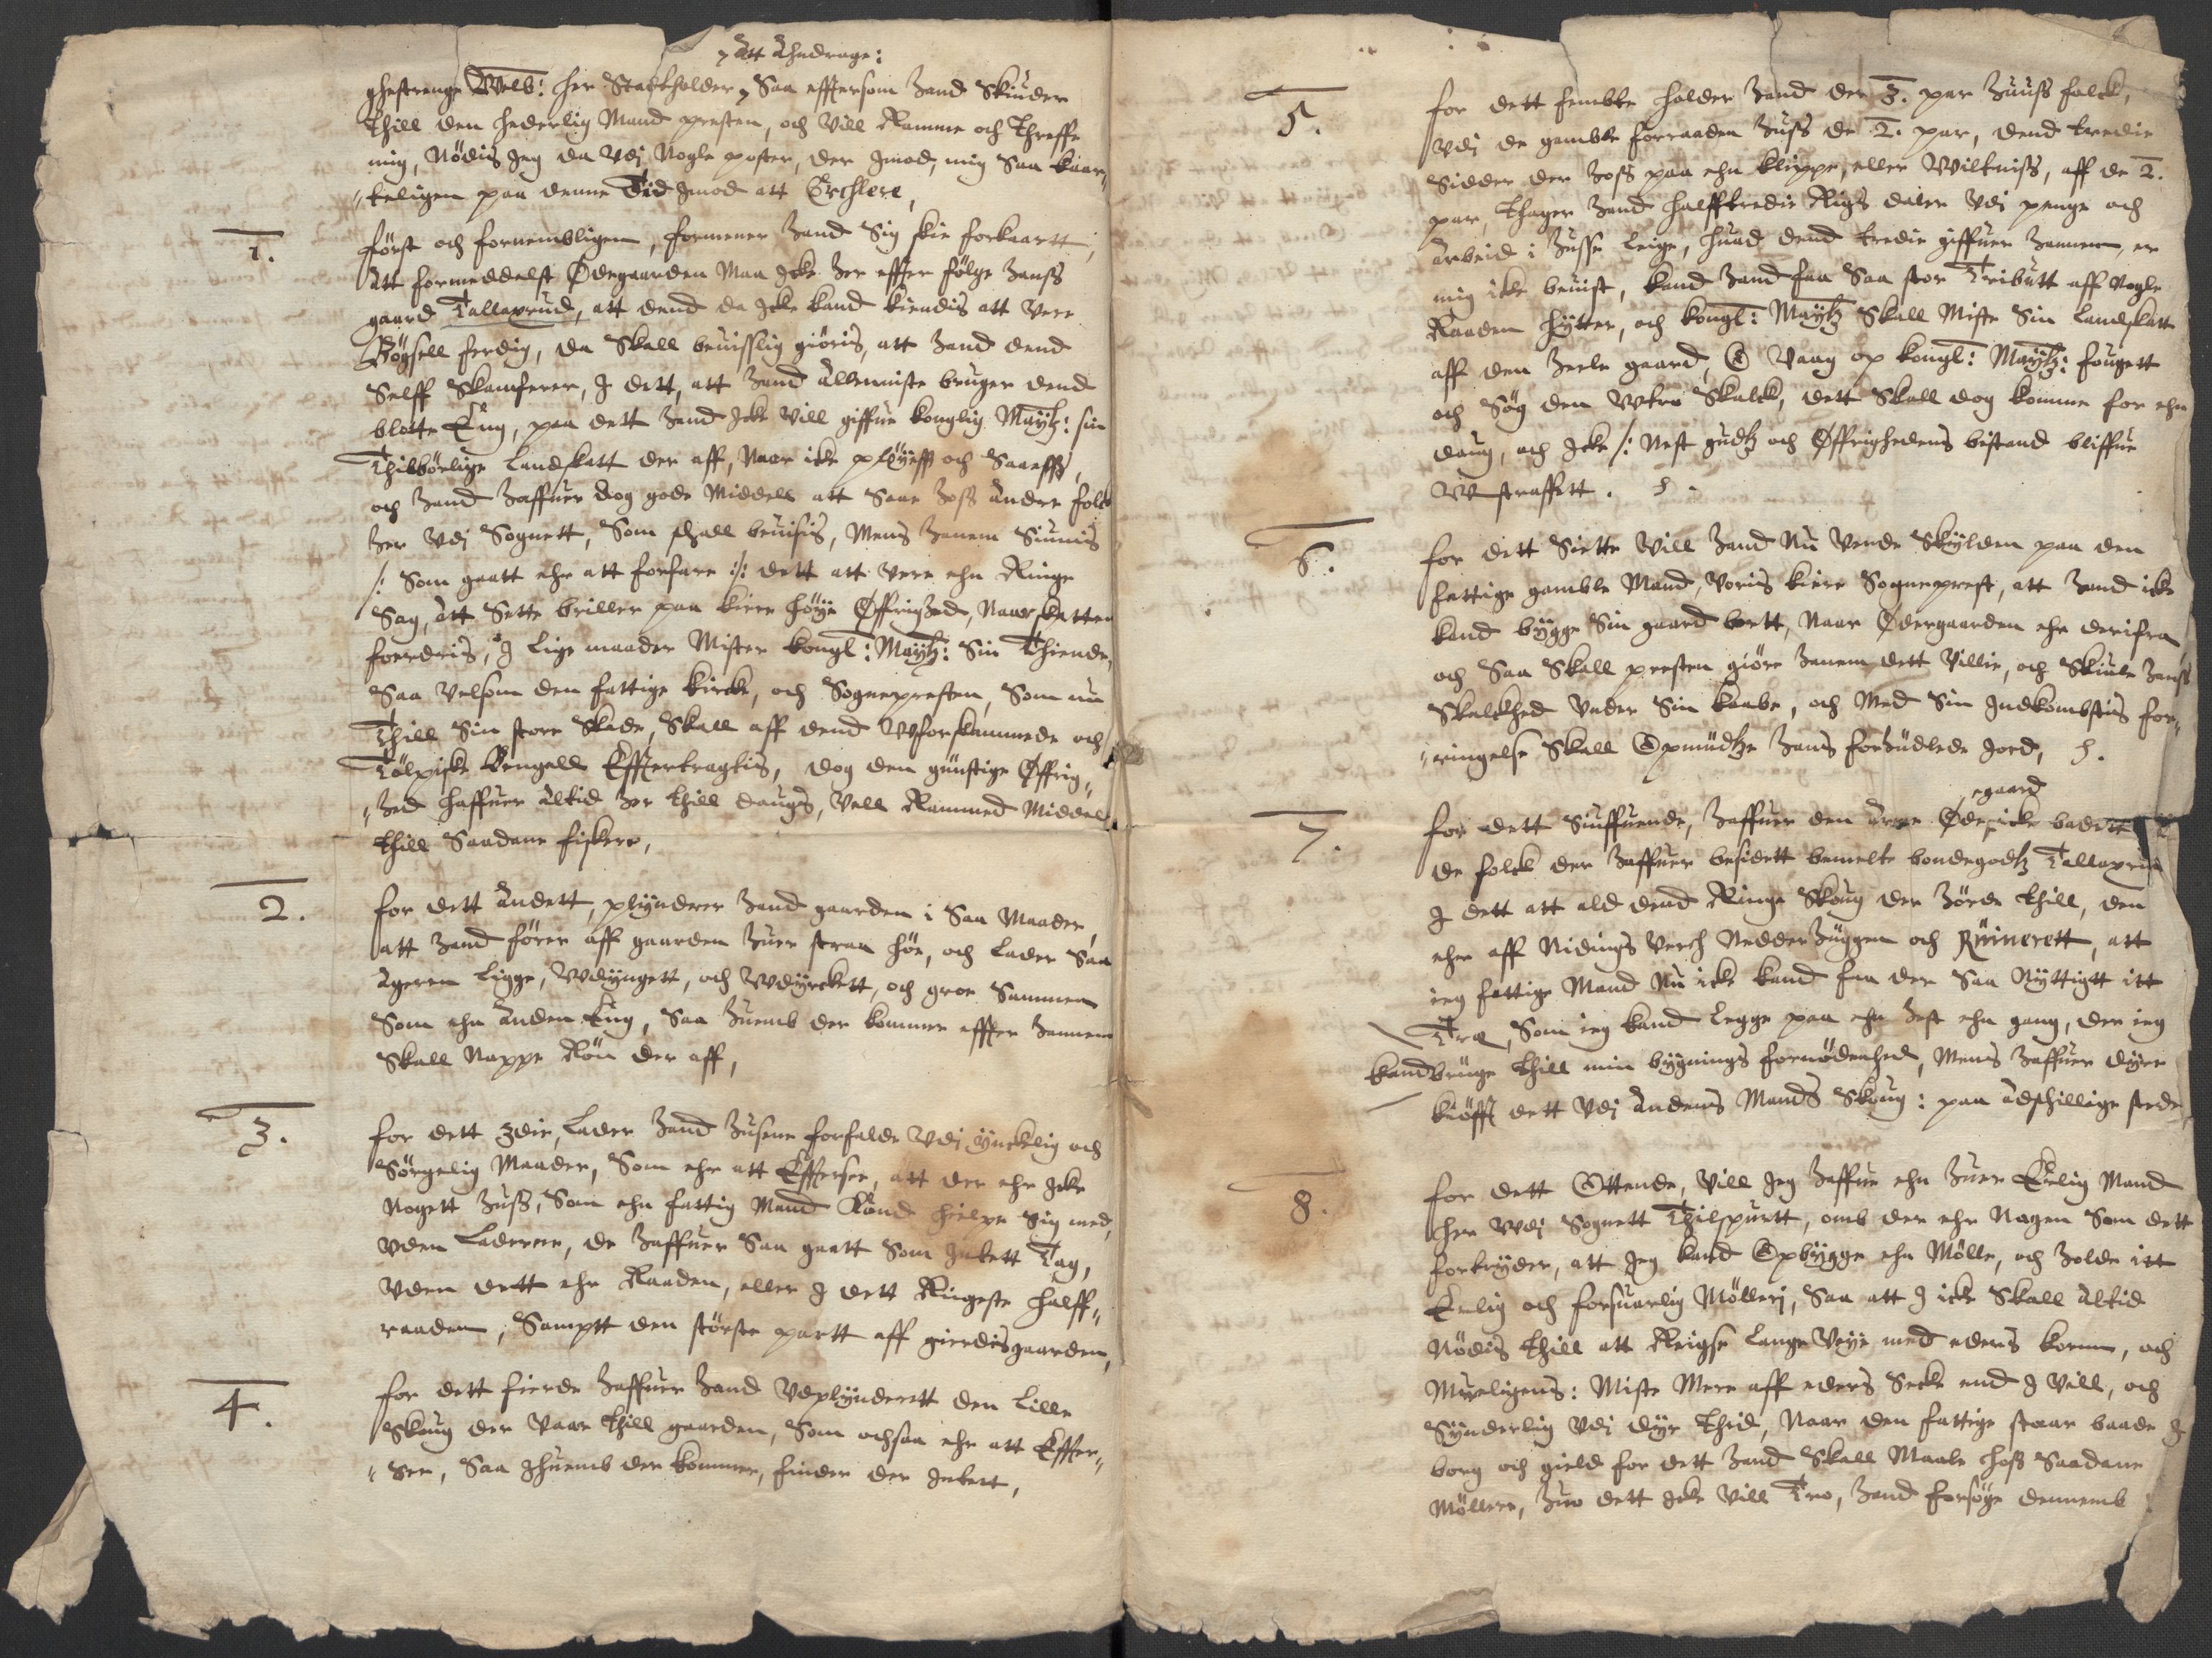 Att Andrage:
ghestrenge Welb: Her Stattholder, Saa efftersom Hand Skiuder
thill den hederlig Mand presten, och Vill Ramme och threffe
mig, Nödis Jeg da Vdj Nogle poster, der Jmod, mig Saa kaar-
teligen paa denne Tid Jmod att Erchlere,
1.
först och fornembligen, formener Hand Sig skie forkaartt,
Att formeddelst Ödegaarden Maa Jcke Her effter fölge Hanss
gaard Tallaxrud, att dend da Jcke kand kiendis att Vere
Bögsell ferdig, da Skall beuisslig giöris, att Hand dend
Selff Skamferer, J dett, att Hand Alleniste bruger dend
blotte Eng, paa dett Hand Jcke Vill giffue konglig Maytz: sin
Thilbörlige Landskatt der aff, Naar icke plöyess och Saaess,
och Hand Haffuer dog gode Middell att Saae Hoss Andre folck
Her Vdj Sognett, Som shall beuisis, Mens Hanem Siunis
/: Som gaatt ehr att forfare :/ dett att Vere ehn Ringe
Sag, Att Sette briller paa kiere Höye Øffrighed, Naar skatten
fordris, J lige maader Mister kongl: Maytz: Sin Thiende,
Saa Velsom den fattige kircke, och Sognepresten, Som nu
Thill Sin store Skade, Skall aff dend Wforskammede och
Tölpiske Bengell Efftertragtis, dog den günstige Øffrig-
hed haffuer Altid Her thill daugs, Vell Rammed Middel
thill Saadane fiskere,
2.
for dett Andett, plÿndrer Hand gaarden i Saa Maader,
att Hand förer aff gaarden Huer straa Höe, och lader Saa
Ageren ligge, Wdÿngett, och Wdÿrckett, och groe Sammen
Som ehn Anden Eng, Saa Huemb der kommer effter Hannem
Skall Nappe Röe der aff,
3.
for dett 3die, Lader Hand Husene forfalde Vdj ÿncklig och
Sörgelig Maader, Som ehr att Effersee, att der ehr Jcke
Nogett Huss, Som ehn fattig Mand Kand hielpe Sig med,
Vden Laderne, de Haffuer Saa gaatt Som Jntett Tag,
Vden dett ehr Raaden, eller J dett Ringeste Halff-
raaden, Samptt den störste partt aff gierdisgaarden,
4.
for dett fierde Haffuer Hand Vdplÿnderett den Lille
Skoug der Vaar thill gaarden, Som ochsaa ehr att Effter-
See, Saa Jhuemb der kommer, finder der Jntett,
5.
for dett fembte holder Hand der 3. par Huuss folck,
Vdj de gamble forraaden Huss de 2. par, dend tredie
Sidder der Hoss paa ehn klippe, eller Wiltniss, aff de 2.
par, thager Hand halfftredie Rigs daler Vdj penge och
Arbeid i Husse leige, huad dend tredie giffuer Hannem, er
mig icke beuist, kand Hand faa Saa stor Tributt aff Nogle
Raaden Hÿtter, och kongl: Maytz Skall Miste Sin landskatt
aff den Heele gaard, O Vaag op kongl: Maytz: fougett
och Sög den Wtro Skalck, dett Skall dog komme for ehn
daug, och Jcke /: Nest gudtz och Øffrighedens bistand bliffue
Wstraffett.
6.
for dett Siette Vill Hand Nu Vende Skÿlden paa den
fattige gamble Mand, Voris kiere Sogneprest, att Hand icke
kand bÿgge Sin gaard bortt, Naar Ödegaarden ehr derifra
och Saa Skall presten giöre Hanem dett Villie, och Skiule Hanss
Skalckhed Vnder Sin kaabe, och Med Sin Jndkombstis for-
ringelse Skall Opmüdtze Hans forhudlede Jord,
7.
for dett Siuffuende, Haffuer den Arme Øde gaard icke badett
de folck der Haffuer besidett bemelte bondegodtz Tallaxrud
J dett att ald dend Ringe Skoug der Hörde thill, den
ehr aff Nidings Verch Nedderhuggen och Ruinerett, att
ieg fattige Mand Nu icke kand faa der Saa Nÿttigtt itt
Træ, Som ieg kand legge paa ehn Hest ehn gang, der ieg
kand bruge thill min bÿgnings fornödenhed, Mens Haffuer dÿre
kiöfft dett Vdj Andens Mands Skoug: paa Adshillige stede,
8.
for dett Ottende, Vill Jeg Haffue ehn Huer Ærlig Mand
her Vdj Sognett Thilspurtt, omb der ehr Nogen Som dett
fortrÿder, att Jeg kand Opbÿgge ehn Mölle, och Holde itt
Ærlig och forsuarlig Möllerj, Saa att J icke Skall Altid
Nödis thill att Reigse lange Veÿe med eders kornn, och
Mueligens: Miste Mere aff eders Secke end J Vill, och
Sÿnderlig Vdj dÿr thid, Naar den fattige staar baade J
borg och gield for dett Hand Skall Maale hoss Saadane
Möllere, Huo dett Jcke Vill Tro, Hand forsöge dennemb